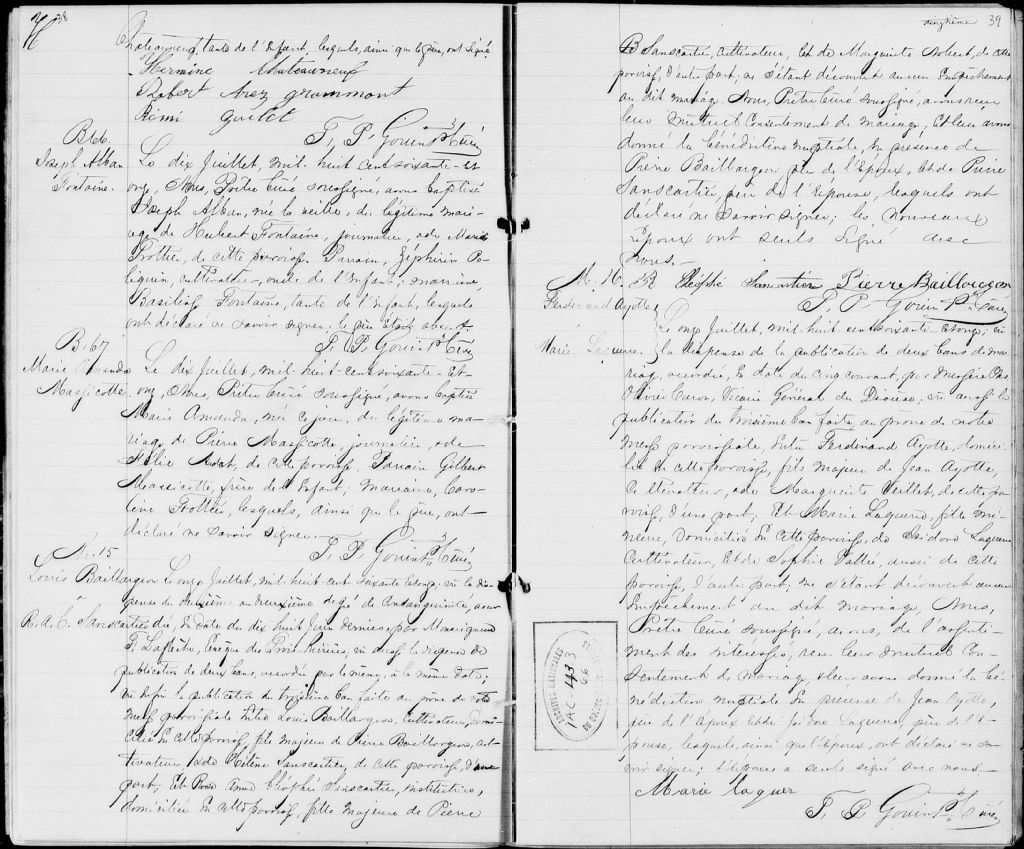 38
Chateauneuf, tante de l'Enfant, lesquels, ainsi que le père, ont signé.
Hermine Chateauneuf
Robert hrez grammont
Rémi
T. P. Gouin Ptre Curé
B. 66.
Joseph Alban
Fontaine.
Le dix Juillet, mil-huit-cent-soixante-et
onze, Nous, Prêtre Curé soussigné, avons baptisé
Joseph Alban, née la veille, du légitime mari-
age de Hubert Fontaine, journalier, et de Marie
Trottier, de cette paroisse. Parrain, Zéphirin Po-
liquin, cultivateur, oncle de l'Enfant; marraine,
Fontaine, tante de l'Enfant, lesquels
ont déclaré ne savoir signer; le père était absent.
T. P. Gouin Ptre Curé
B. 67
Marie Amanda
Massicotte.
Le dix Juillet, mil-huit-cent-soixante-et
onze, Nous, Prêtre Curé soussigné, avons baptisé
Marie Amanda, née ce jour, du légitime ma-
riage de Pierre Massicotte, journalier, et de
de cette paroisse. Parrain Gilbert
Massicotte, frère de l'Enfant; marraine, Caro-
line Trottier, lesquels, ainsi que le père, ont
déclaré ne savoir signer.
T. P. Gouin Ptre Curé
M. 15
Louis Baillargeon
R. A. C. Sanscartier
Le onze Juillet, mil-huit-cent soixante et onze; vu la dis-
pense du deuxième au deuxième degré de Consanguinité, accor
dée, en date du dix huit Juin dernier, par Monseigneur
F. Laflèche, Evêque des Trois Rivières, vu aussi la dispense de
publication de deux bans, accordée par le même, à la même date;
vu enfin la publication du troisième ban faite au prône de notre
messe paroissiale Entre Louis Baillargeon, cultivateur, domi-
cilié en cette paroisse, fils majeur de Pierre Baillargeon, cul-
tivateur et de Hélène Sanscartier, de cette paroisse, d'une
part; Et Rose Anna Cléophée Sanscartier, Institutrice,
domiciliée en cette paroisse, fille majeure de Pierre
39
B Sanscartier, cultivateur, et de Marguerite Nobert, de cette
paroisse, d'autre part; ne s'étant découvert aucun Empêchement
au dit mariage, Nous, Prêtre Curé soussigné, avons reçu
leur mutuel Consentement de mariage, Et leur avons
donné la bénédiction nuptiale, en présence de
Pierre Baillargeon père de l'Epoux, Et de Pierre
Sanscartier, père de l'Epouse, lesquels ont
déclaré ne savoir signer; les nouveaux
époux ont seuls signé avec
nous.
Cléophé Sancartier Pierre Baillargeon
T. P. Gouin Ptre Curé
M. 16.
Ferdinand Ayotte
Marie Laquerre.
Le onze Juillet, mil-huit-cent-soixante-et-onze; vu
la dispense de la publication de deux bans de ma-
riage, accordée, en date du cinq courant, par Messire Chs
Olivier Caron, Vicaire Général du Diocèse; vu aussi la
publication du troisième ban faite au prône de notre
messe paroissiale, Entre Ferdinand Ayotte, domici-
lié en cette paroisse, fils majeur de Jean Ayotte,
Cultivateur, et de Marguerite Veillet, de cette pa-
roisse, d'une part; Et Marie Laquerre, fille mi-
neure, domiciliée en cette paroisse, de Isidore Laquerre
Cultivateur, Et de Sophie Vallée, aussi de cette
paroisse, d'autre part; ne s'étant découvert aucun
Empêchement au dit mariage, Nous,
Prêtre Curé soussigné, avons, de l'assenti-
ment des intéressés, reçu leur mutuel Con-
sentement de mariage, et leur avons donné la bé-
nédiction nuptiale En présence de Jean Ayotte,
père de l'Epoux Et de Isidore Laquerre, père de l'E-
pouse, lesquels, ainsi que l'époux, ont déclaré ne sa-
voir signer; l'épouse a seule signé avec nous.
Marie laquer
T. P. Gouin Ptre Curé